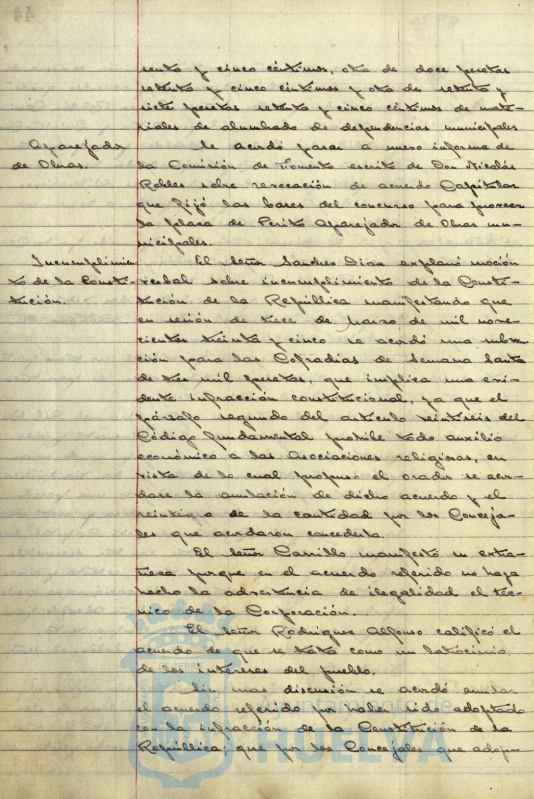 44
senta y cinco céntimos, otra de doce pesetas
setenta y cinco céntimos y otra de setenta y
siete pesetas setenta y cinco céntimos de mate-
riales de alumbrado de dependencias municipales
Aparejador
de Obras.
Se acordó pasar a nuevo informe de
la Comisión de Fomento escrito de Don Nicolás
Robles sobre revocación de acuerdo Capitular
que fijó las bases del concurso para proveer
la plaza de Perito Aparejador de Obras mu-
nicipales.
Incumplimien-
to de la Consti-
tución.
El Señor Sanchez Diaz explanó moción
verbal sobre incumplimiento de la Consti-
tución de la República manifestando que
en sesión de trece de Marzo de mil nove-
cientos treinta y cinco se acordó una subven-
ción para las Cofradias de Semana Santa
de tres mil pesetas, que implica una evi-
dente infracción constitucional, ya que el
párrafo segundo del artículo veintiseis del
Código fundamental prohibe todo auxilio
económico a las Asociaciones religiosas, en
vista de lo cual propuso el orador se acor-
dase la anulación de dicho acuerdo y el
reintegro de la cantidad por los Conceja-
les que acordaron concederla.
El Señor Carrillo manifestó su extra-
ñeza porque en el acuerdo referido no haya
hecho la advertencia de ilegalidad el téc-
nico de la Corporación.
El Señor Rodriguez Alfonso calificó el
acuerdo de que se trata como un latrocinio
de los intereses del pueblo.
Sin mas discusión se acordó anular
el acuerdo referido por haber sido adoptado
con la infracción de la Constitución de la
República; que por los Concejales que adop-
HUELVA